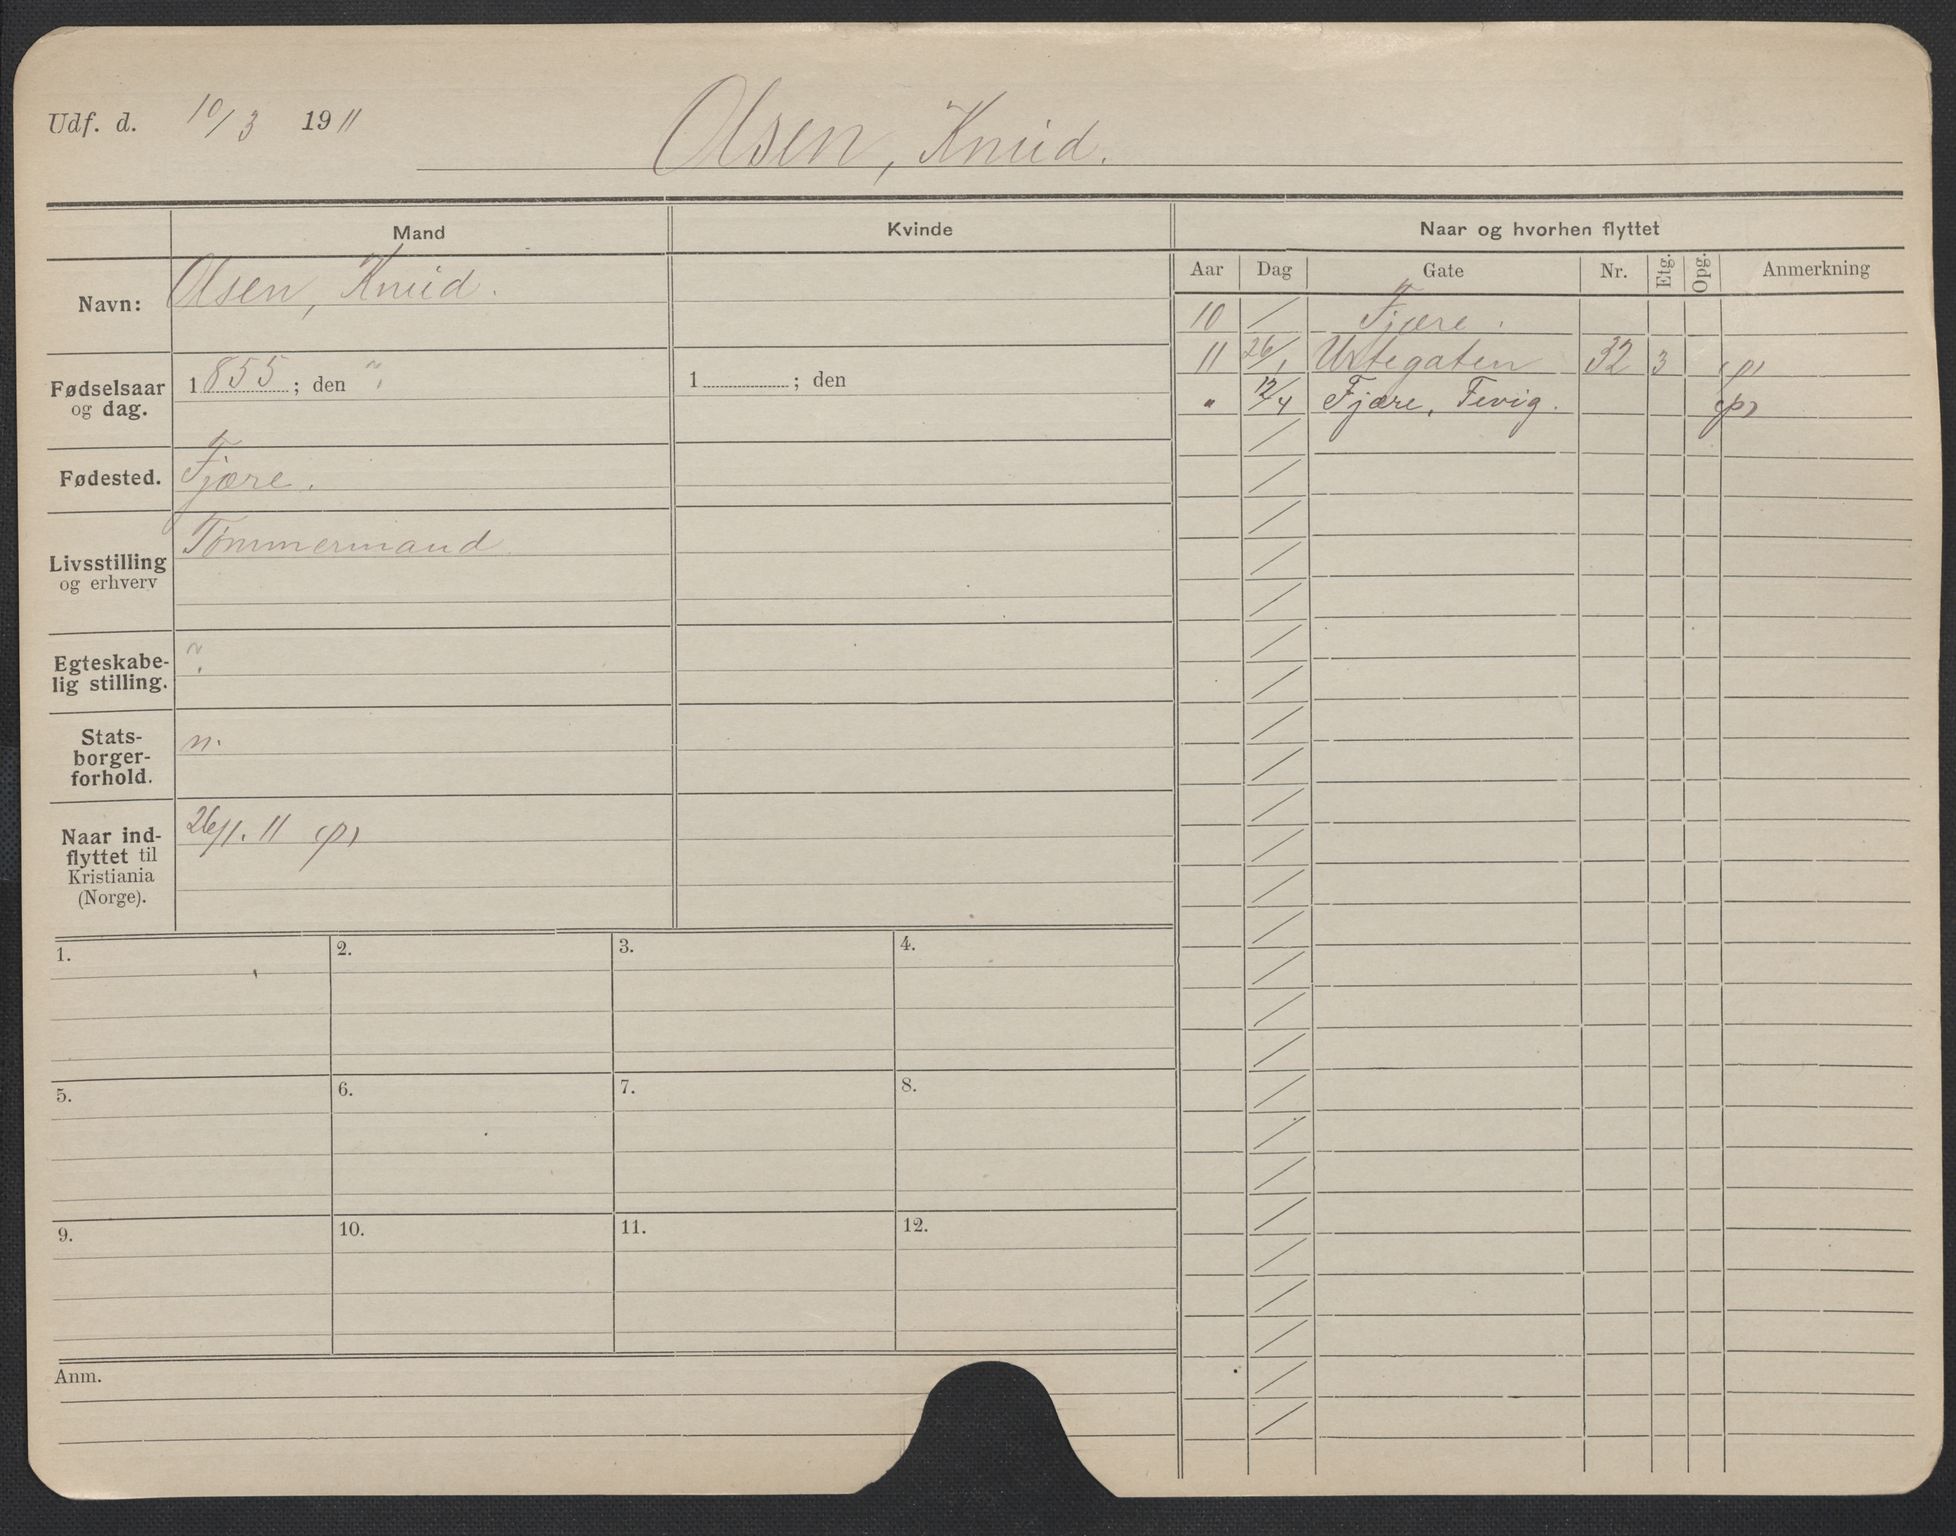 Udf. d. 10/3 1911
Olsen, Knud.
Mand Kvinde Naar og hvorhen flyttet
Aar Dag Gate Nr. Etg. Opg. Anmerkning
Navn: Olsen, Knud.
Fødselsaar og dag. 1855; den ?
1 ; den
Fødested. Fjære.
Livsstilling og erhverv Tømmermand
Egteskabe-
lig stilling. ?
Stats-
borger-
forhold. n.
Naar ind-
flyttet til
Kristiania
(Norge). 26/1. 11 (p)
10 / Fjære.
11 26/1 Urtegaten 32 3 (p)
" 12/4 Fjære, Fevig. (p)
1. 2. 3. 4.
5. 6. 7. 8.
9. 10. 11. 12.
Anm.